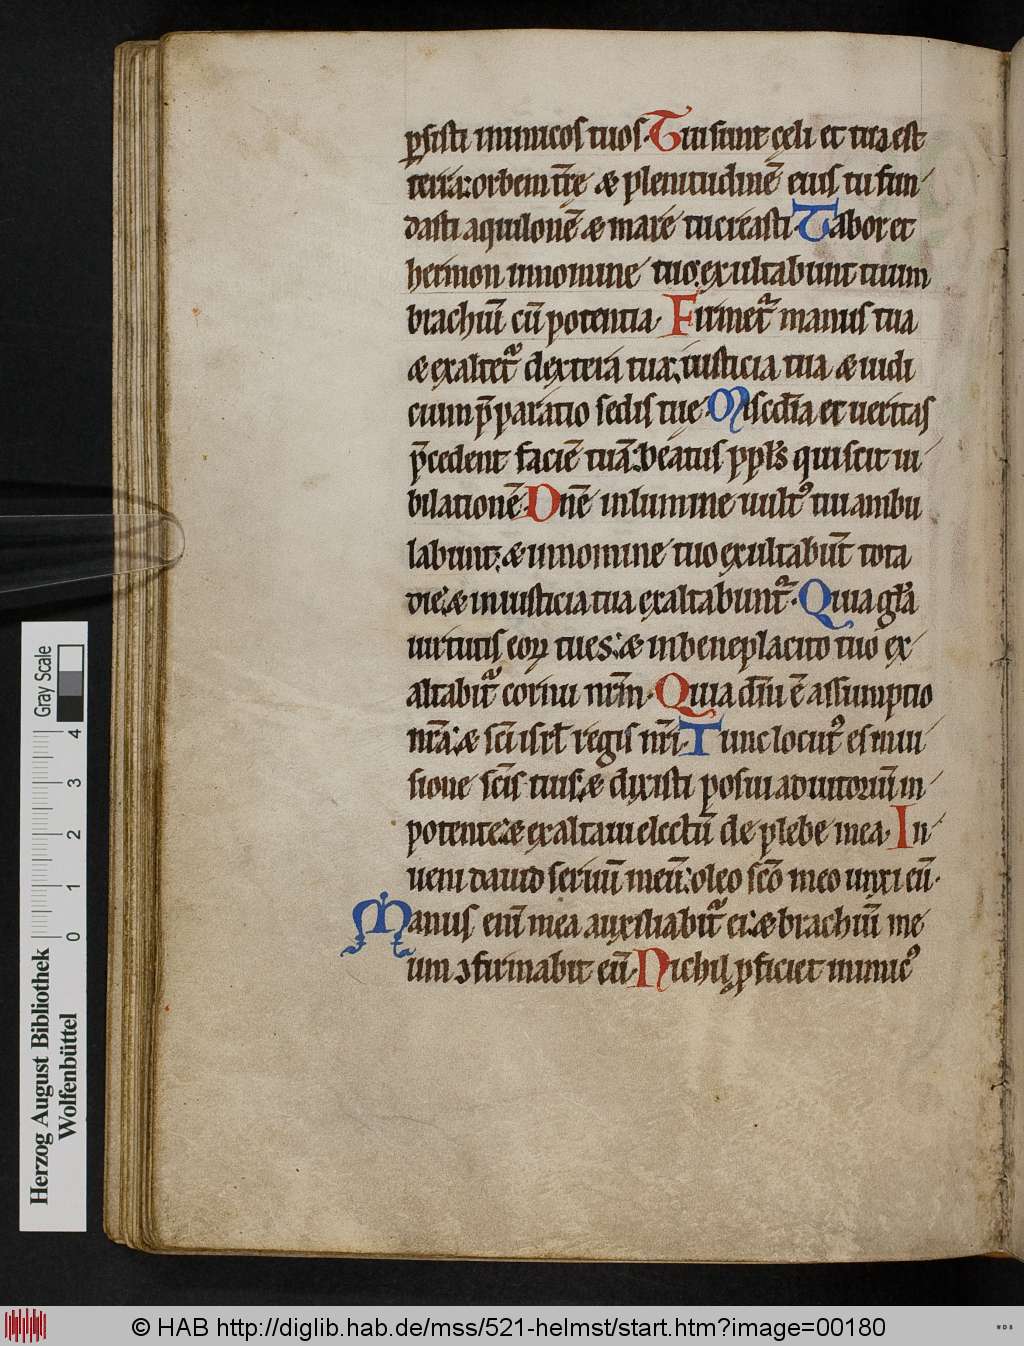 ꝑsisti inimicos tuos. Tui sunt celi et tua est
terra: orbem tr̄e & plenitudinē eius tu fun-
dasti aquilonē & mare tu creasti. Tabor et
hermon in nomine tuo exultabunt tuum
brachiū cū potentia. Firmet᷑ manus tua
& exaltet᷑ dextera tua: iusticia tua & iudi
cium p̄paratio sedis tue. Misc̄dia et ueritas
p̄cedent faciē tuā: beatus ppl̄s qui scit iu-
bilationē. Dn̄e in lumine uult᷒ tui ambu
labunt: & in nomine tuo exultabūt tota
die: & in iusticia tua exaltabunt᷑. Quia gl̄a
uirtutis eoꝝ tu es: & in beneplacito tuo ex-
altabit᷑ cornu nr̄m. Quia dn̄i ē assumptio
nr̄a: & sc̄i isrl̄ regis nr̄i. Tunc locut᷒ es in ui-
sione sc̄is tuis: & dixisti posui adiutoriū in-
potente: & exaltaui electū de plebe mea. In-
ueni dauid seruū meū: oleo sc̄o meo unxi eū.
Manus enī mea auxiliabit᷑ ei: & brachiū me
um ꝯfirmabit eū. Nichil ꝓficiet inimic᷒
Gray Scale
0 1 2 3 4
Herzog August Bibliothek
Wolfenbüttel
© HAB http://diglib.hab.de/mss/521-helmst/start.htm?image=00180